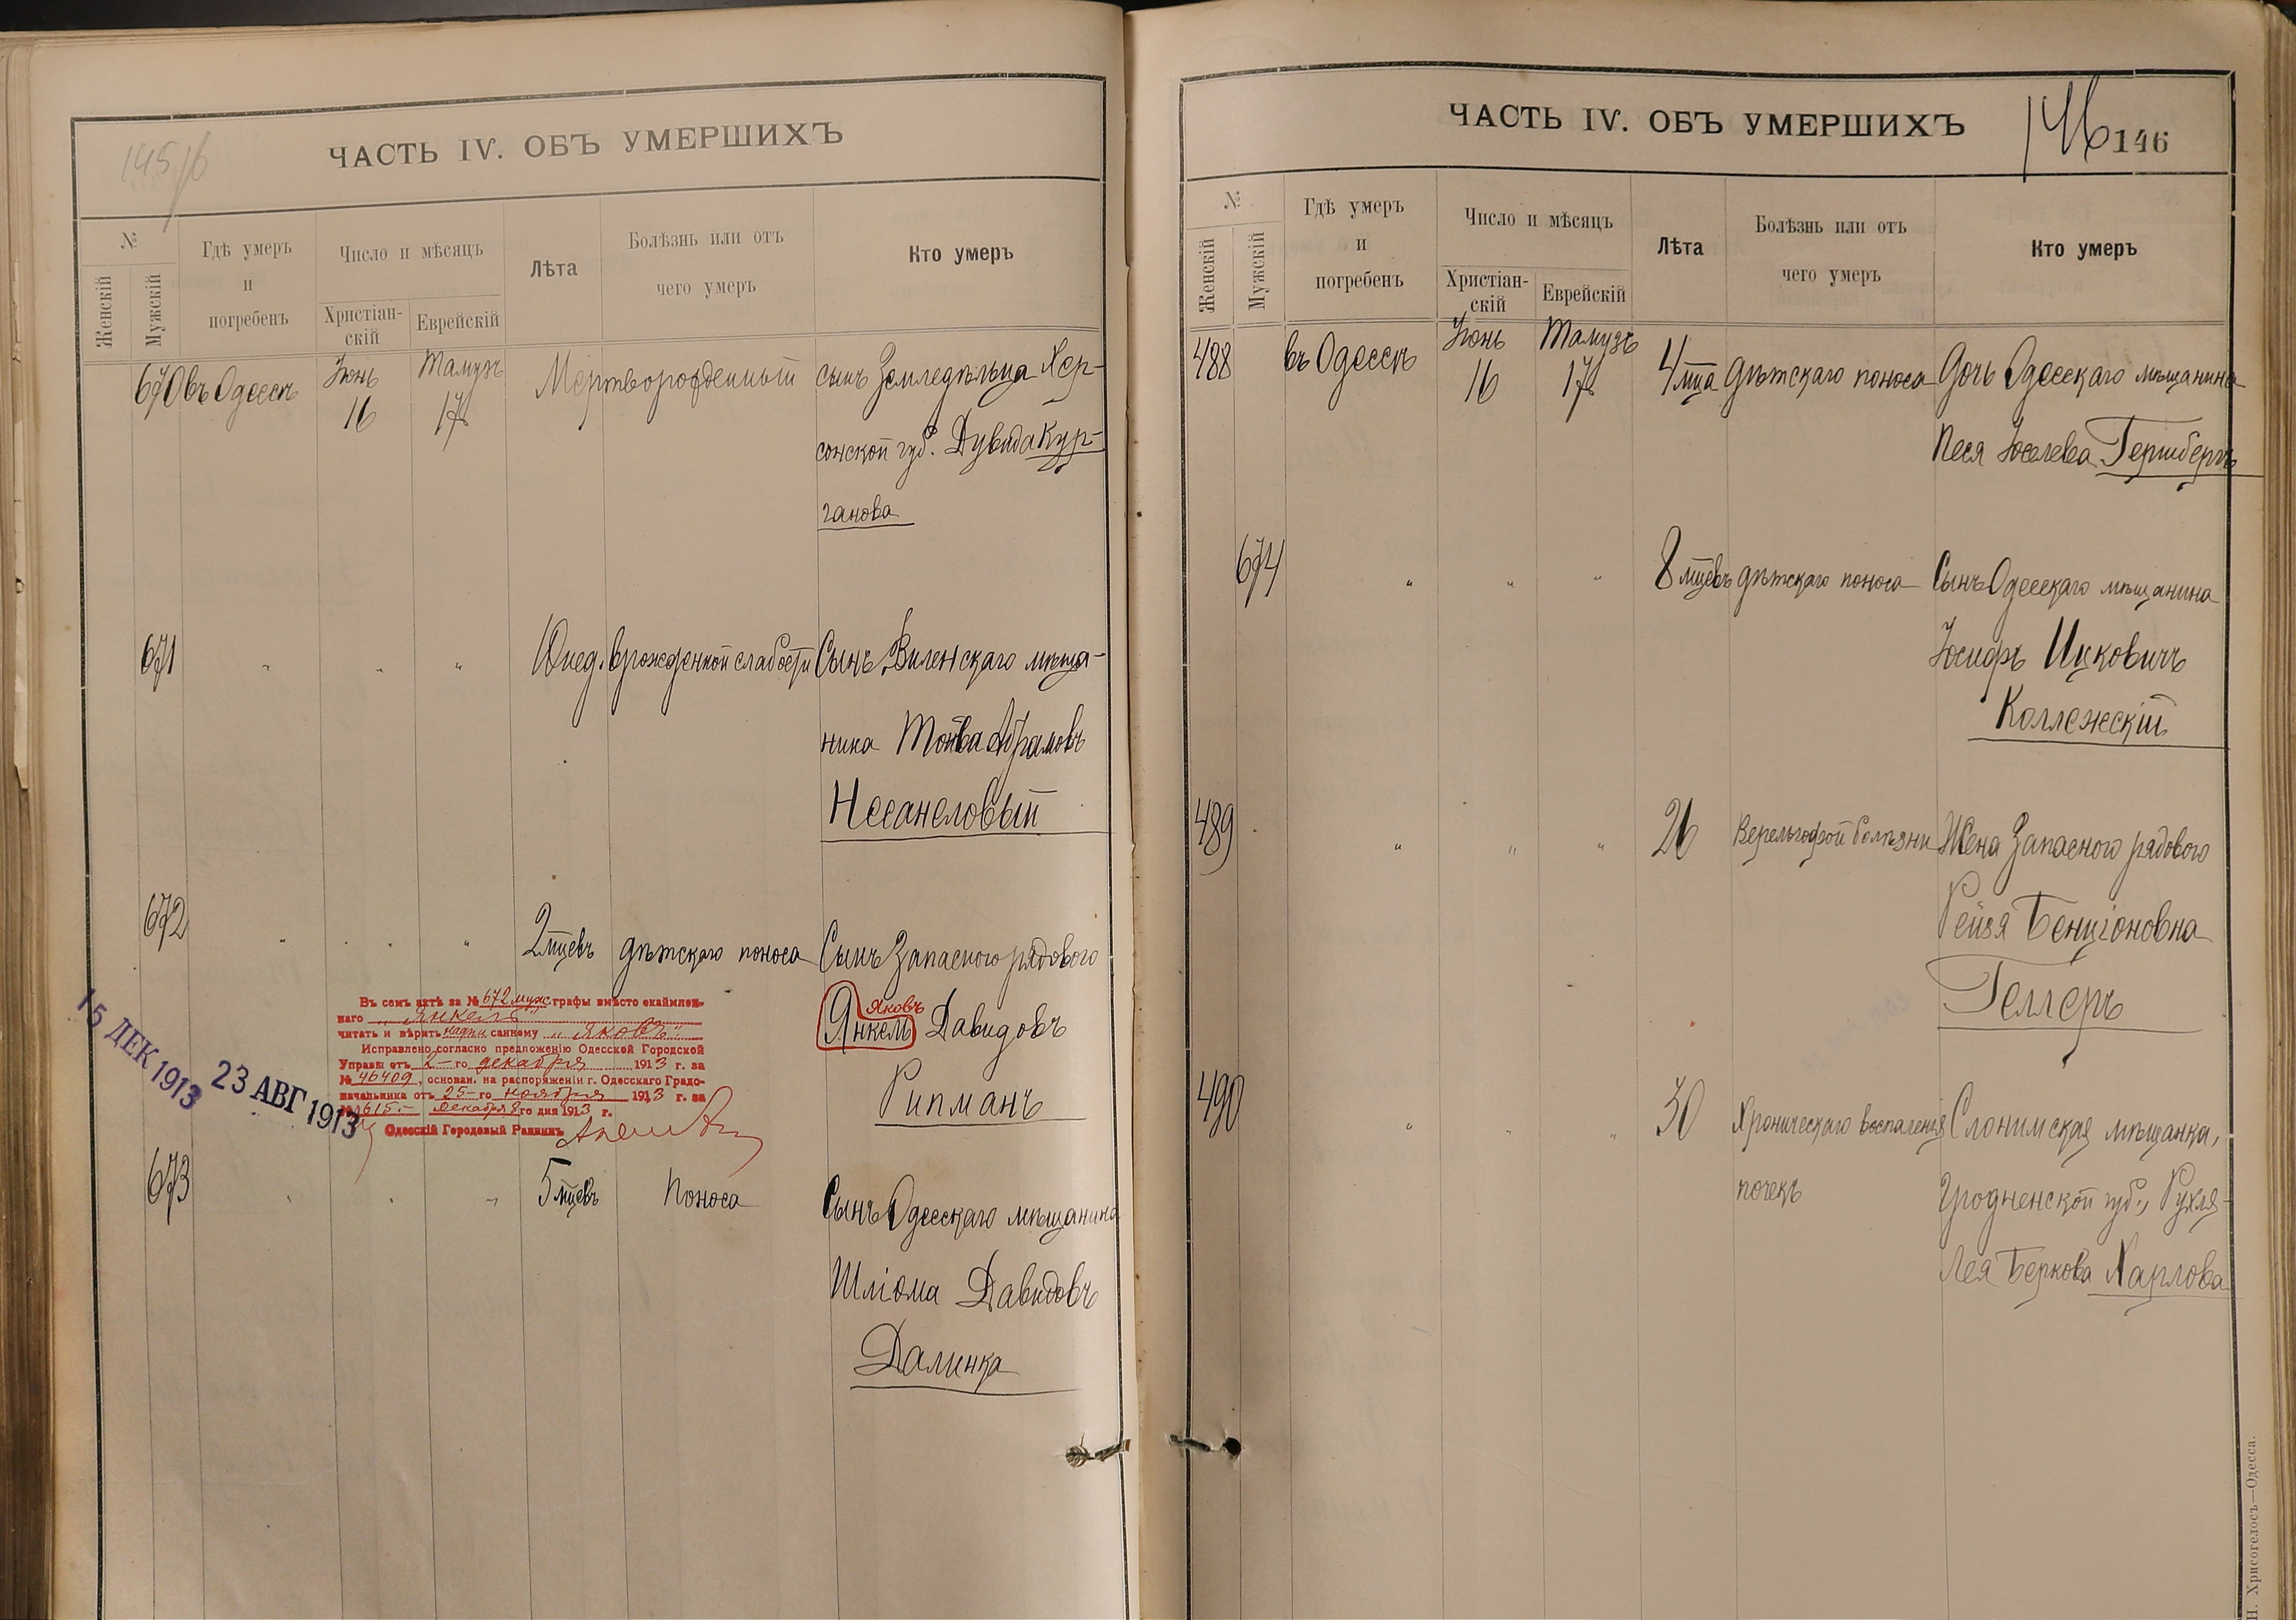 145/б
ЧАСТЬ IV. ОБЪ УМЕРШИХЪ
№
Женскій
Мужскій
Гдѣ умеръ
и
погребенъ
Число и мѣсяцъ
Христіан-
скій
Еврейскій
Лѣта
Болѣзнь или отъ
чего умеръ
Кто умеръ
670 въ Одессѣ Іюнь Тамузъ Мертворожденный сынъ Земледѣльца Хер-
16 17
сонской губ. Дувида Кур-
ганова
671 " " " 10 нед. врожденной слабости Сынъ Виленскаго мѣща-
нина Абрамовъ
Несанеловый
672 " " " " 2 мцевъ дѣтскаго поноса Сынъ Запаснаго рядового
Яковъ
Янкель Давидовъ
Рипманъ
Въ семъ актѣ за № 672 муж. графы вмѣсто окаймлен-
наго „Янкель“
читать и вѣрить надписанному „Яковъ“
Исправлено согласно предложенію Одесской Городской
Управы отъ 2-го декабря 1913 г. за
№ 46409, основан. на распоряженіи г. Одесскаго Градо-
начальника отъ 25-го ноября 1913 г. за
№ 1615.- декабря 8го дня 1913 г.
Одесскій Городовый Раввинъ
15 ДЕК 1913
23 АВГ 1913
673 " " " 5 мцевъ Поноса Сынъ Одесскаго мѣщанина
Шліома Давидовъ
Далинка
ЧАСТЬ IV. ОБЪ УМЕРШИХЪ
146 146
№
Женскій
Мужскій
Гдѣ умеръ
и
погребенъ
Число и мѣсяцъ
Христіан-
скій
Еврейскій
Лѣта
Болѣзнь или отъ
чего умеръ
Кто умеръ
488 въ Одессѣ Іюнь Тамузъ 4 мца дѣтскаго поноса Дочь Одесскаго мѣщанина
16 17
Песя Іоселева Гершбергъ
674 " " " 8 мцевъ дѣтскаго поноса Сынъ Одесскаго мѣщанина
Іосифъ Ицковичъ
Коллежскій
489 " " " 26 Верельгофой болѣзни Жена Запасного рядового
Рейзя Бенціоновна
Геллеръ
490 " " " 30 Хроническаго воспаленія Слонимская мѣщанка,
почекъ Гродненской губ., Рухля-
Лея Беркова Харлова
Н. Хрисогелосъ—Одесса.